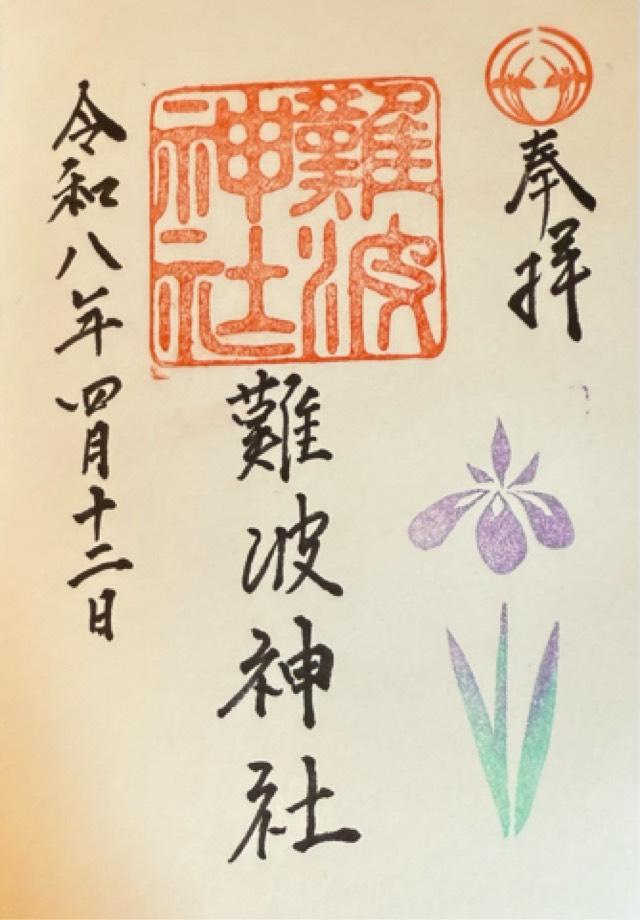 奉拝
難波神社
難波神社
令和八年四月十二日